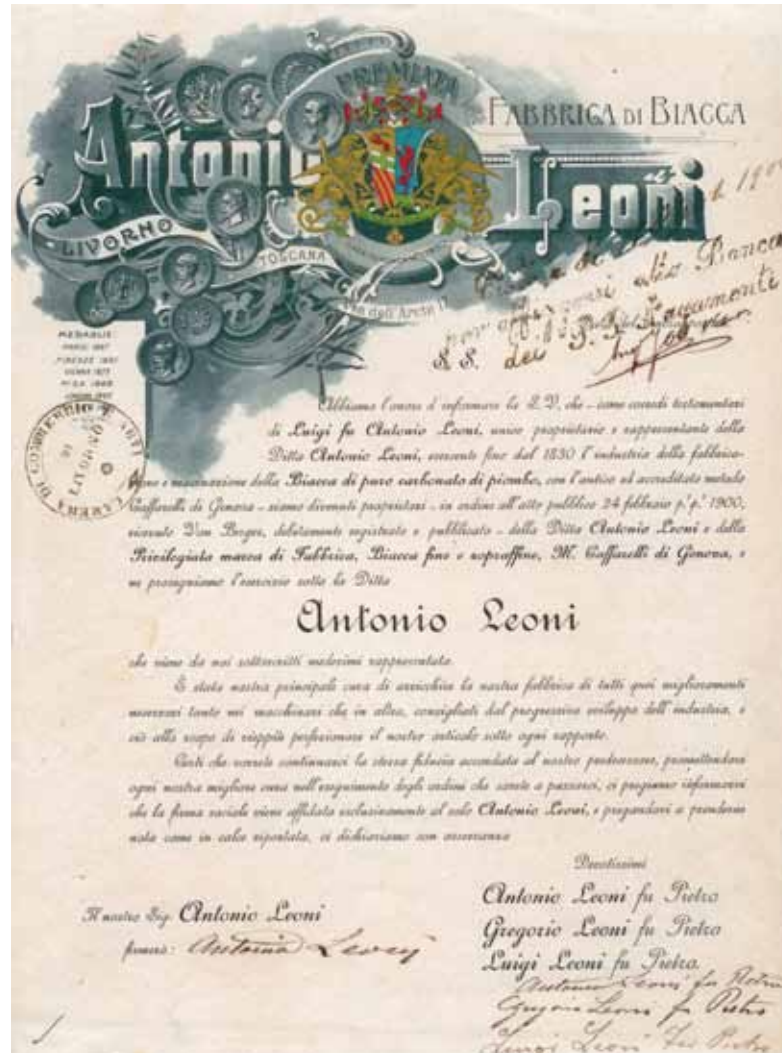 PREMIATA
FABBRICA DI BIACCA
Antonio Leoni
LIVORNO
TOSCANA
Via dell'Arete 17
MEDAGLIE
S. S.
Abbiamo l'onore d'informare la S. V. che - come eredi testamentari
di Luigi fu Antonio Leoni, unico proprietario e rappresentante della
Ditta Antonio Leoni, esercente fino dal 1830 l'industria della fabbrica-
zione e macinazione della Biacca di puro carbonato di piombo, con l'antico ed accreditato metodo
Caffarelli di Genova - siamo divenuti proprietari - in ordine all'atto pubblico 24 febbraio p.º p.º 1900,
ricevuto Von Berger, debitamente registrato e pubblicato - della Ditta Antonio Leoni e della
Privilegiata marca di Fabbrica, Biacca fine e sopraffine, M. Caffarelli di Genova, e
ne proseguiamo l'esercizio sotto la Ditta
Antonio Leoni
che viene da noi sottoscritti medesimi rappresentata.
È stata nostra principale cura di arricchire la nostra fabbrica di tutti quei miglioramenti
necessari tanto nei macchinari che in altro, consigliati dal progressivo sviluppo dell'industria, e
ciò allo scopo di vieppiù perfezionare il nostro articolo sotto ogni rapporto.
Certi che vorrete continuarci la stessa fiducia accordata al nostro predecessore, promettendovi
ogni nostra migliore cura nell'eseguimento degli ordini che sarete a passarci, ci pregiamo informarvi
che la firma sociale viene affidata esclusivamente al solo Antonio Leoni, e pregandovi a prenderne
nota come in calce riportata, ci dichiariamo con osservanza
Devotissimi
Antonio Leoni fu Pietro
Gregorio Leoni fu Pietro
Luigi Leoni fu Pietro.
Il nostro Sig. Antonio Leoni
firmerà: Antonio Leoni
Antonio Leoni fu Pietro
Gregorio Leoni fu Pietro
Luigi Leoni fu Pietro